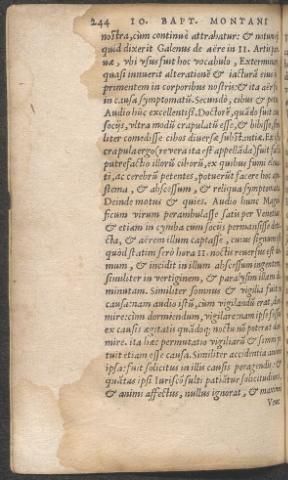 244 IO. BAPT. MONTANI
nostra, cùm continuè attrahatur: & notum
quid dixerit Galenus de aëre in II. Arti
uæ, vbi vsus fuit hoc vocabulo, Exterminat
quasi innuerit alterationē & iacturā eius
primentem in corporibus nostris: & ita aër
in causa symptomatū. Secundò, cibus & potus
Audio hūc excellentiss. Doctorē, quādo fuit cū
socijs, vltra modū crapulatū esse, & bibisse,
liter comedisse cibos diuersæ substātiæ. Ex
crapula ergo (re vera ita est appellāda) fuit
putrefactio illorū ciborū, ex quibus fumi
ti, ac cerebrū petentes, potuerūt facere hoc
stema, & abscessum, & reliqua symptomata
Deinde motus & quies. Audio hunc Magni
ficum virum perambulasse satis per Venetias
& etiam in cymba cum socijs permansisse
cta, & aërem illum captasse, cuius signum
quòd statim serò hora II. noctis reuersus est do
mum, & incidit in illum abscessum ingentem
similiter in vertiginem, & paralysim illam di
minutam. Similiter somnus & vigilia fuit
causa: nam audio istū, cùm vigilandū erat, dor
mire: cùm dormiendum, vigilare: nam ipse
ex causis agitatis quādoq; noctu nō poterat dor
mire. ita hæc permutatio vigiliarū & somni po
tuit etiam esse causa. Similiter accidentia animi
ipsa: fuit solicitus in illis causis peragendis: &
quātas ipsi Iuriscōsulti patiātur solicitudines
& animi affectus, nullus ignorat, & maximè